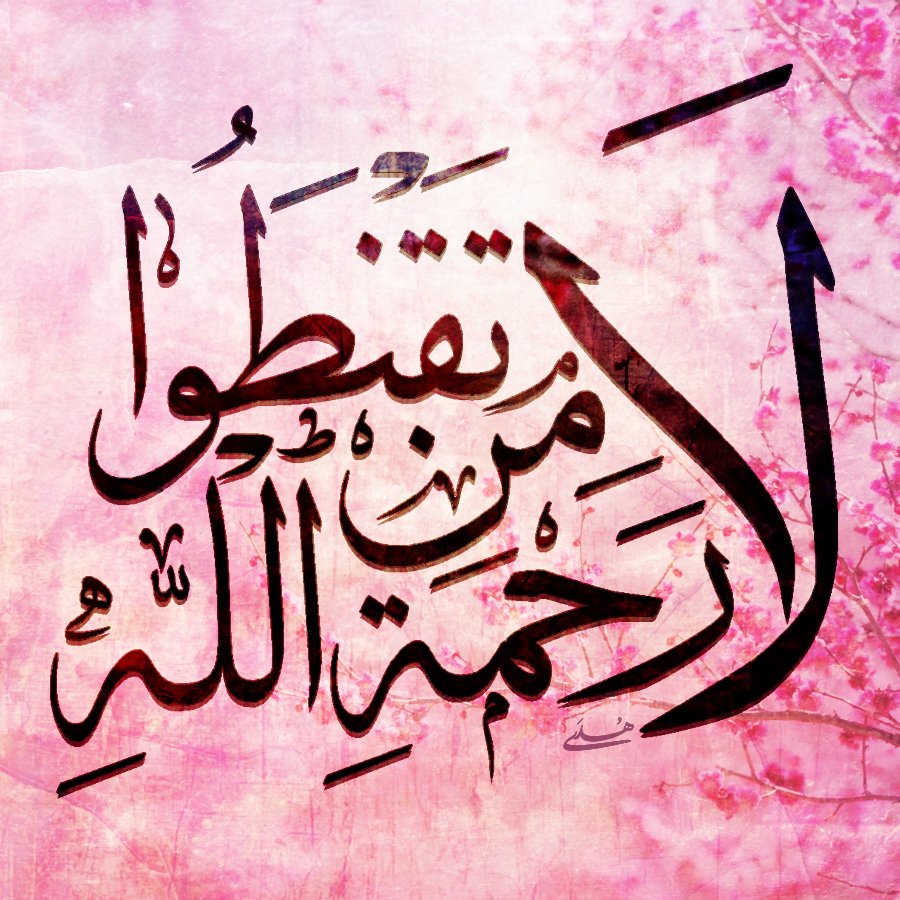 لَا تَقْنَطُوا مِنْ رَحْمَةِ اللَّهِ
هُدَى